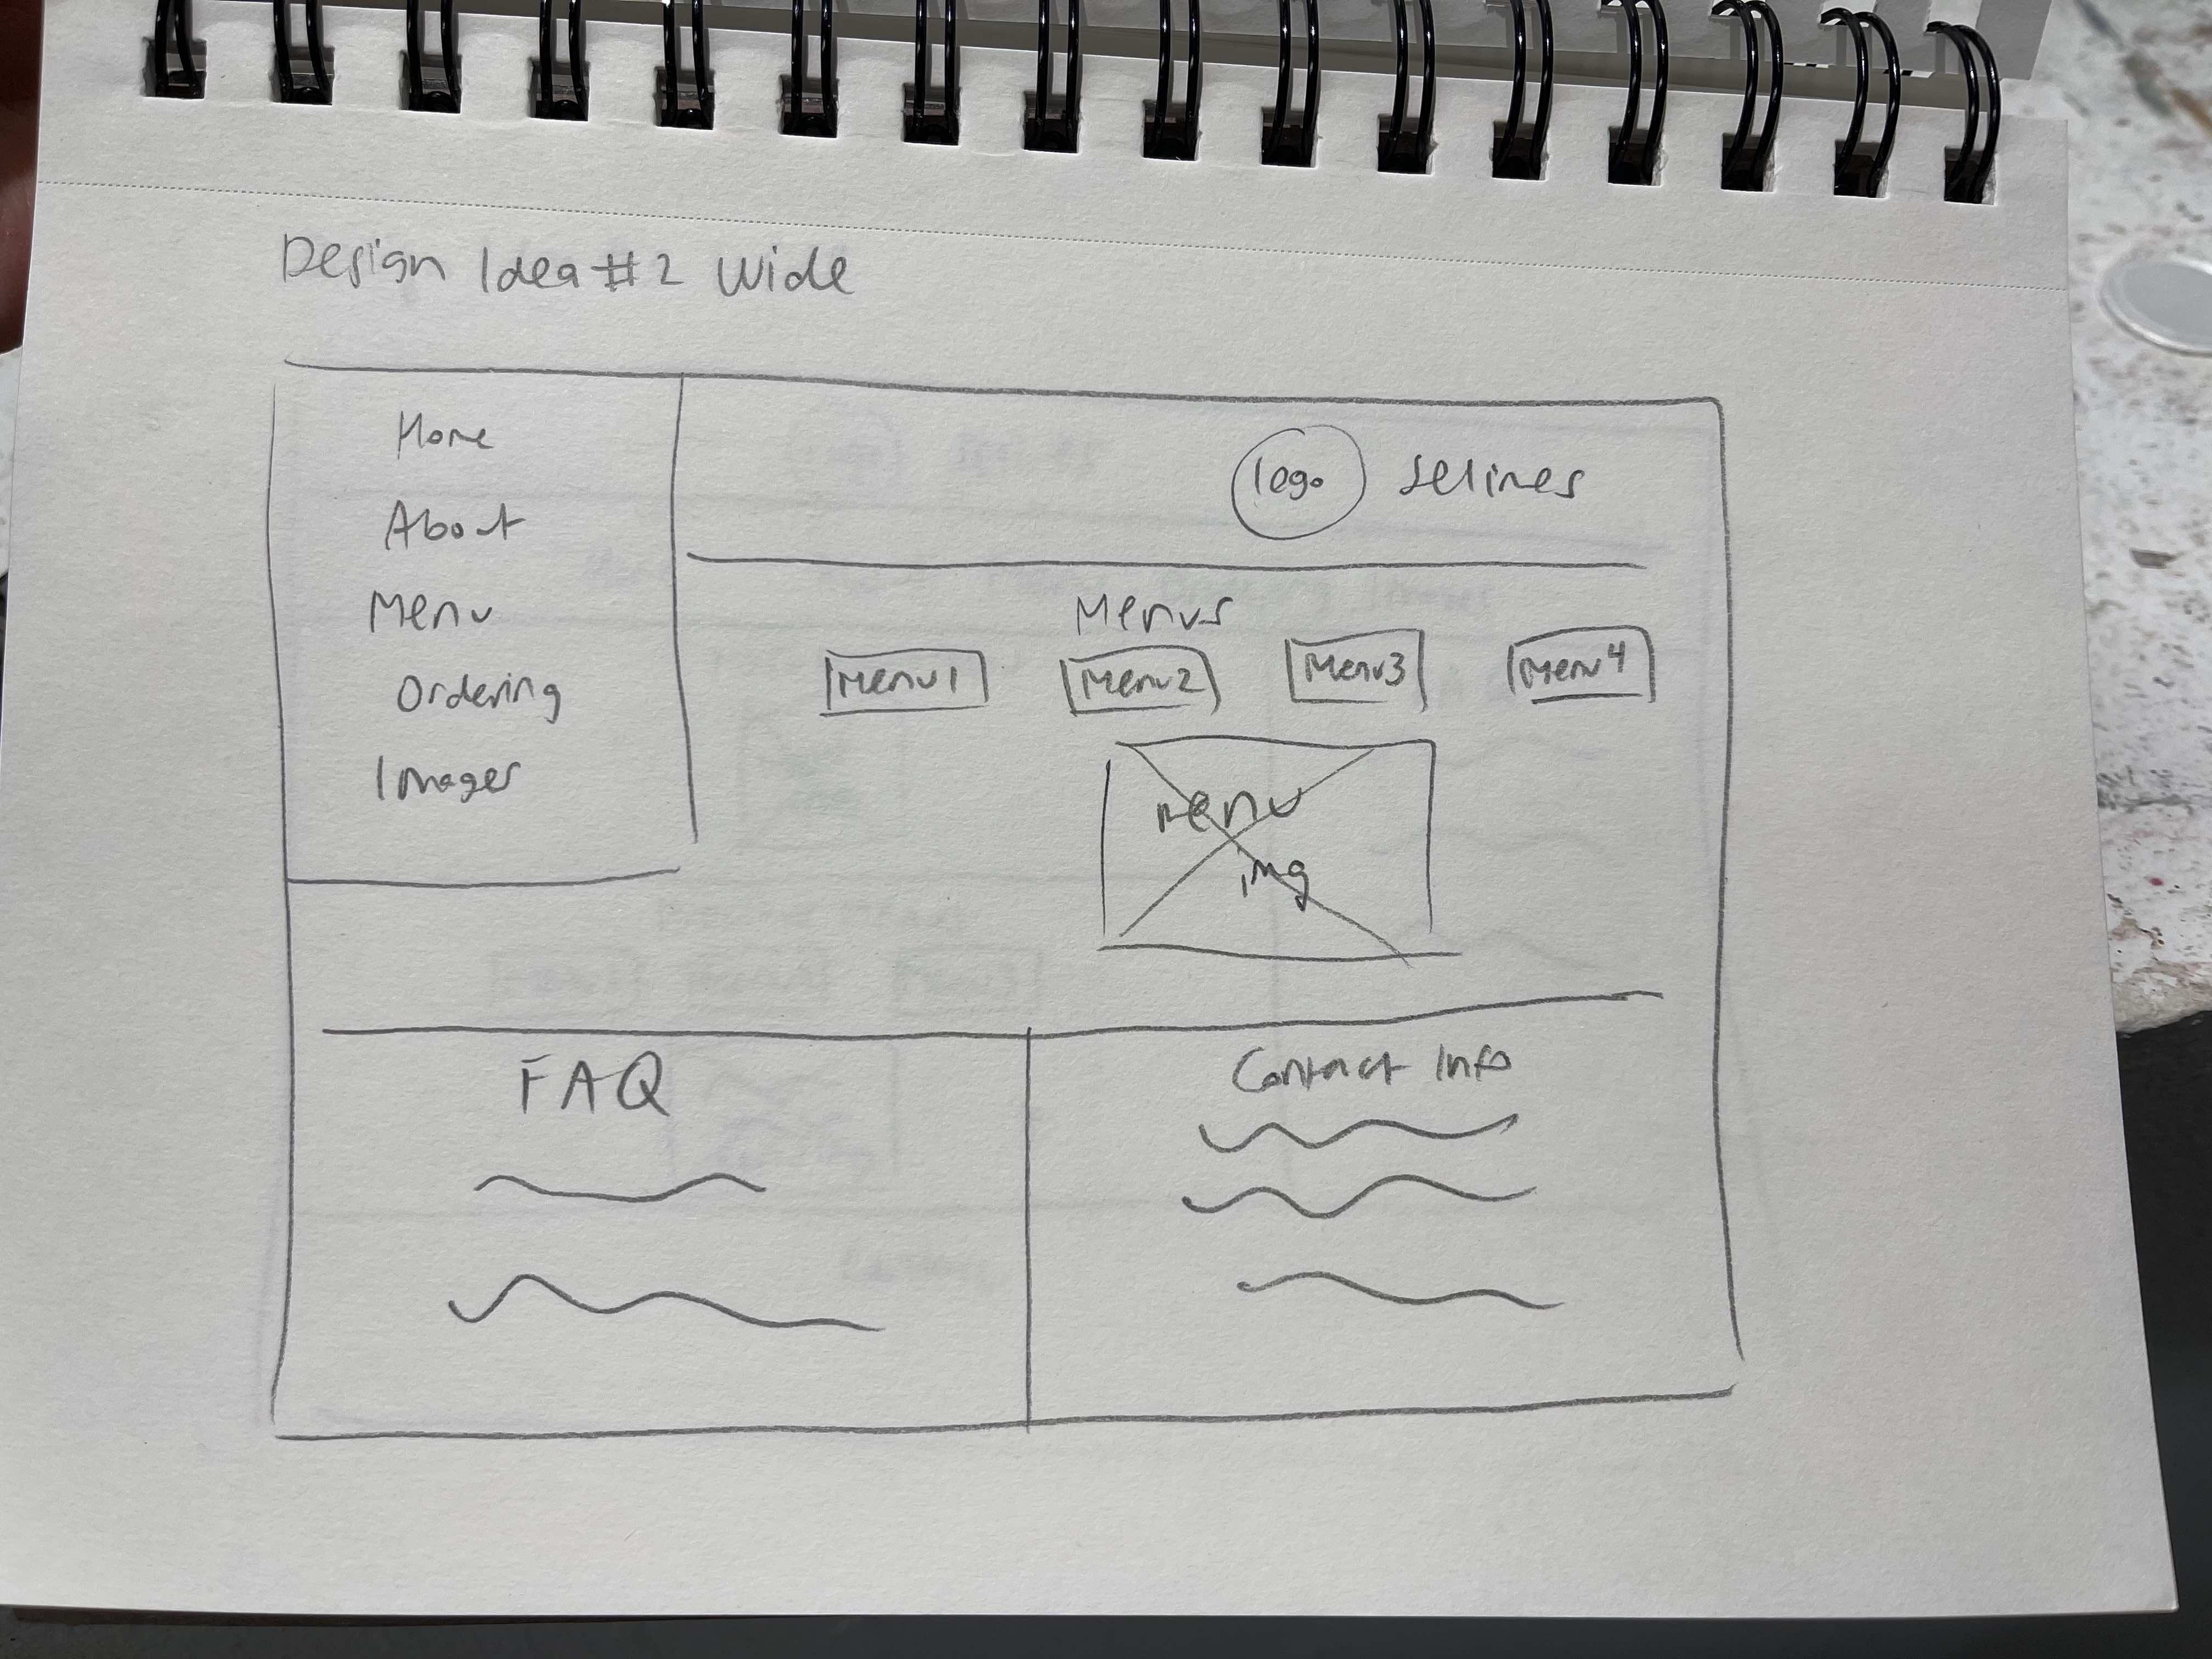 Design Idea #2 Wide
Home
About
Menu
Ordering
Images
logo Selines
Menus
Menu1 Menu2 Menu3 Menu4
menu
img
FAQ
Contact Info